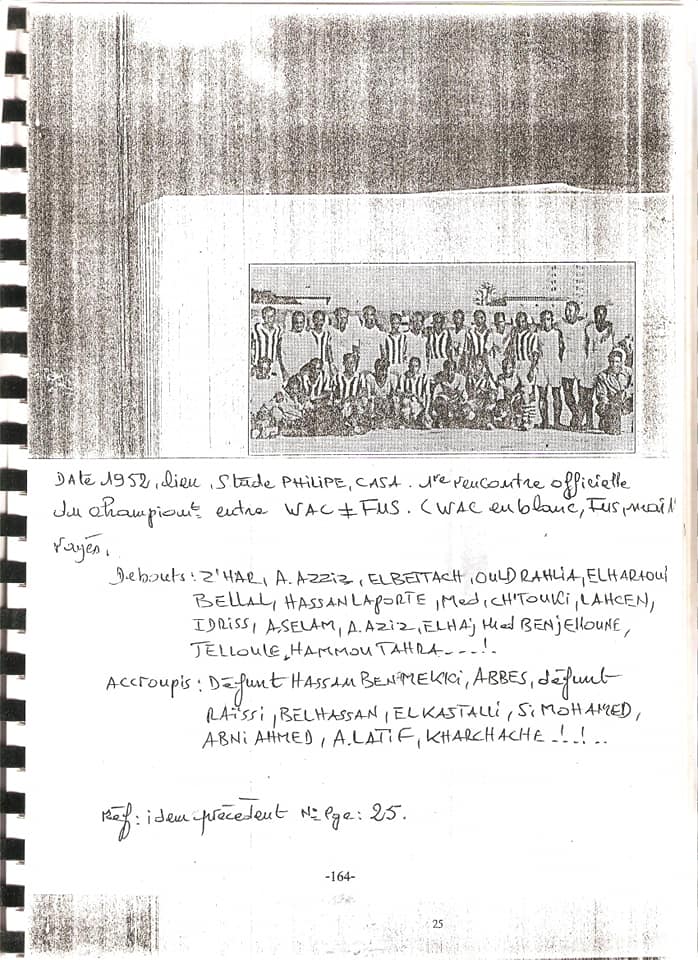 DATE 1952, lieu, Stade PHILIPE, CASA. 1re rencontre officielle
du championt entre WAC ≠ FUS. (WAC en blanc, FUS, mail
rayés.
Debouts: Z'HAR, A. AZZIZ, ELBETTACH, OULD RAHLIA, ELHARAOUI
BELLAL, HASSAN LAPORTE, Med, CH'TOUKI, LAHCEN,
IDRISS, A.SELAM, A.AZIZ, ELHAJ Med BENJELLOUNE,
JELLOULE, HAMMOU TAHRA....!.
Accroupis: Défunt HASSAN BEN-MEKKI, ABBES, défunt
RAÏSSI, BELHASSAN, EL KASTALLI, Si MOHAMED,
ABNI AHMED, A.LATIF, KHARCHACHE .!.!..
Réf: idem précédent N° Pge: 25.
-164-
25